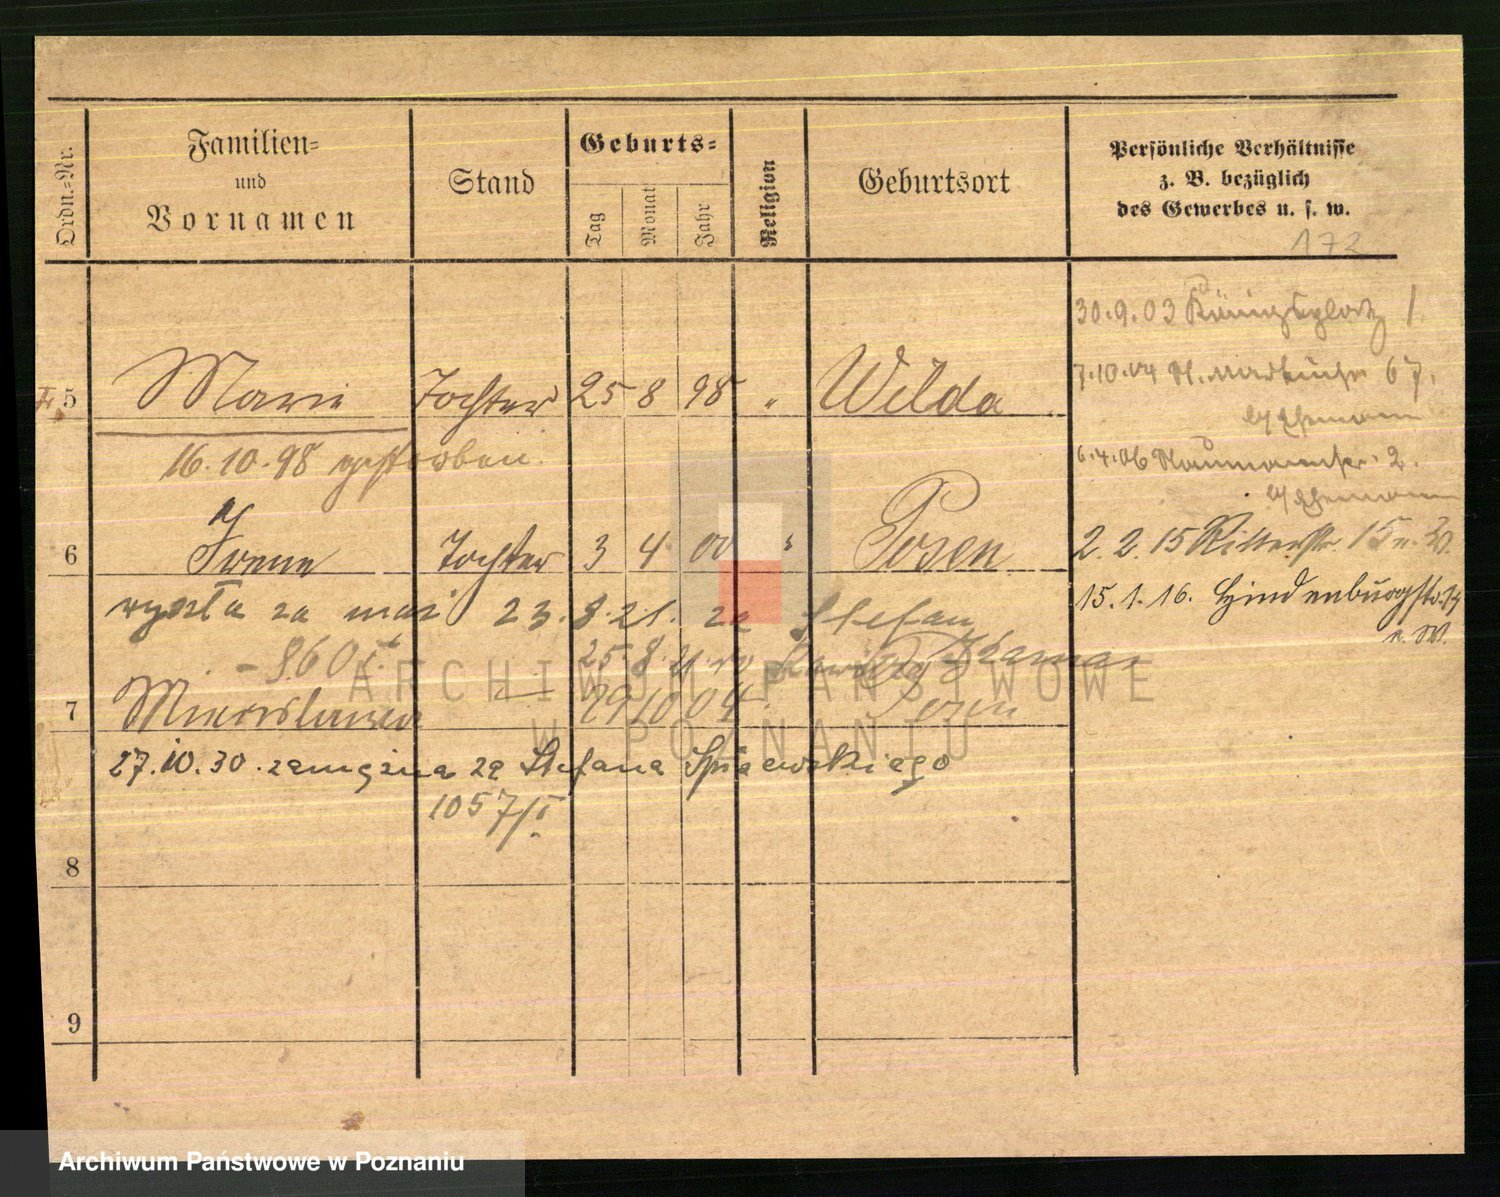 Ordn.-Nr.
Familien-
und
Vornamen
Stand
Geburts-
Tag
Monat
Jahr
Religion
Geburtsort
Persönliche Verhältnisse
z. B. bezüglich
des Gewerbes u. s. w.
172
30.9.03 Königsplatz 1.
5 Marie Tochter 25 8 98 " Wilda
7.10.04 67.
16.10.98 gestorben.
6.4.06 Naumannstr. 2.
6 Irene Tochter 3 4 00 " Posen
2.2.15 Ritterstr. 15
wyszła za mąż 23.8.21. za Stefan
15.1.16. Hindenburgstr.
25.8.21
7 Mieczislawa — 29 10 04 Posen
27.10.30 zamężna za Stefana
1057/I.
8
9
ARCHIWUM PAŃSTWOWE
W POZNANIU
Archiwum Państwowe w Poznaniu